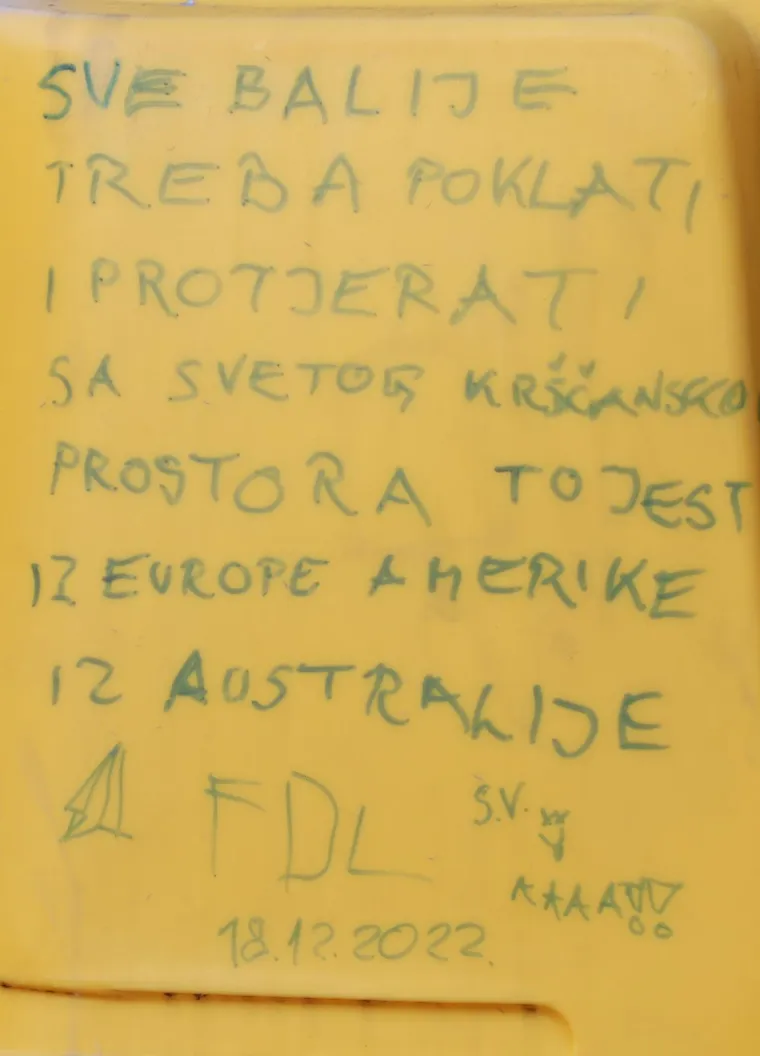 SVE BALIJE
TREBA POKLATI
I PROTJERATI
SA SVETOG KRŠČANSKO
PROSTORA TO JEST
IZ EUROPE AMERIKE
IZ AUSTRALIJE
FDL S.V.
AAAA!!
18.12.2022.